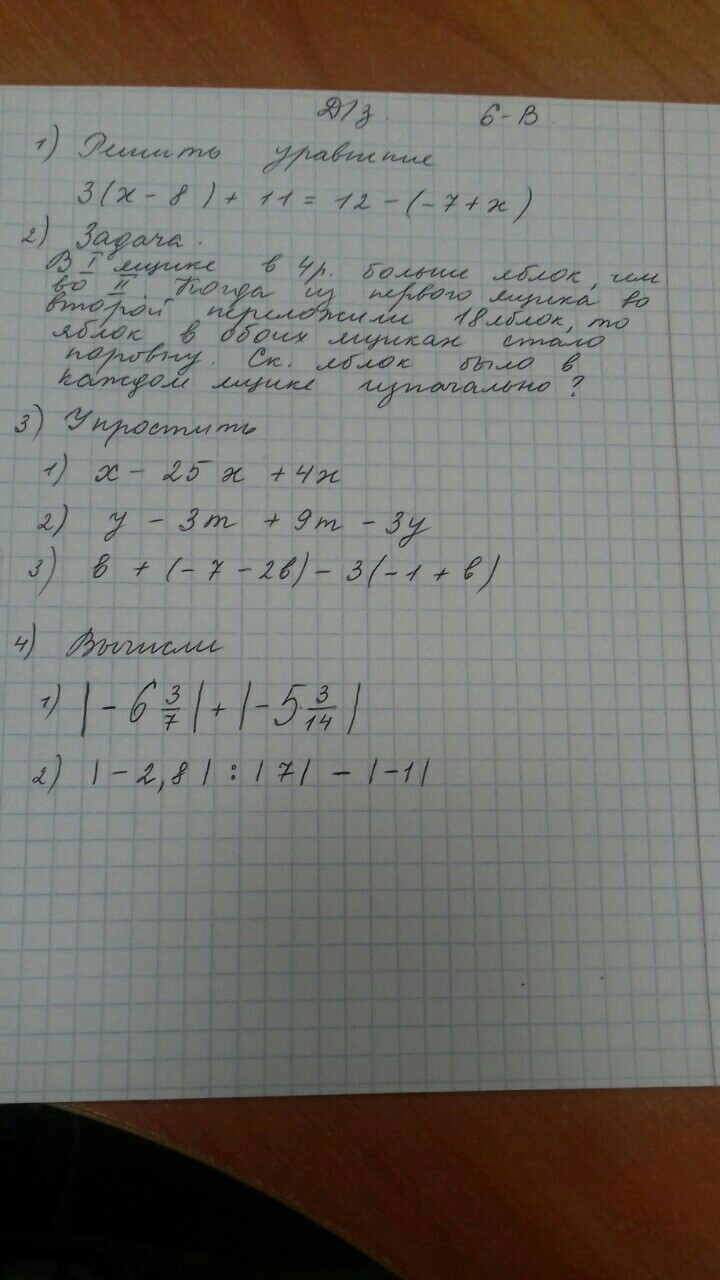 Д/з. 6-В
1) Решить уравнение
3(х - 8) + 11 = 12 - (-7 + х)
2) Задача.
В I ящике в 4р. больше яблок, чем
во II. Когда из первого ящика во
второй переложили 18 яблок, то
яблок в обоих ящиках стало
поровну. Ск. яблок было в
каждом ящике изначально?
3) Упростить
1) х - 25х + 4х
2) у - 3m + 9m - 3у
3) в + (-7 - 2в) - 3(-1 + в)
4) Вычисли
1) |-6 3/7| + |-5 3/14|
2) |-2,8| : |7| - |-1|